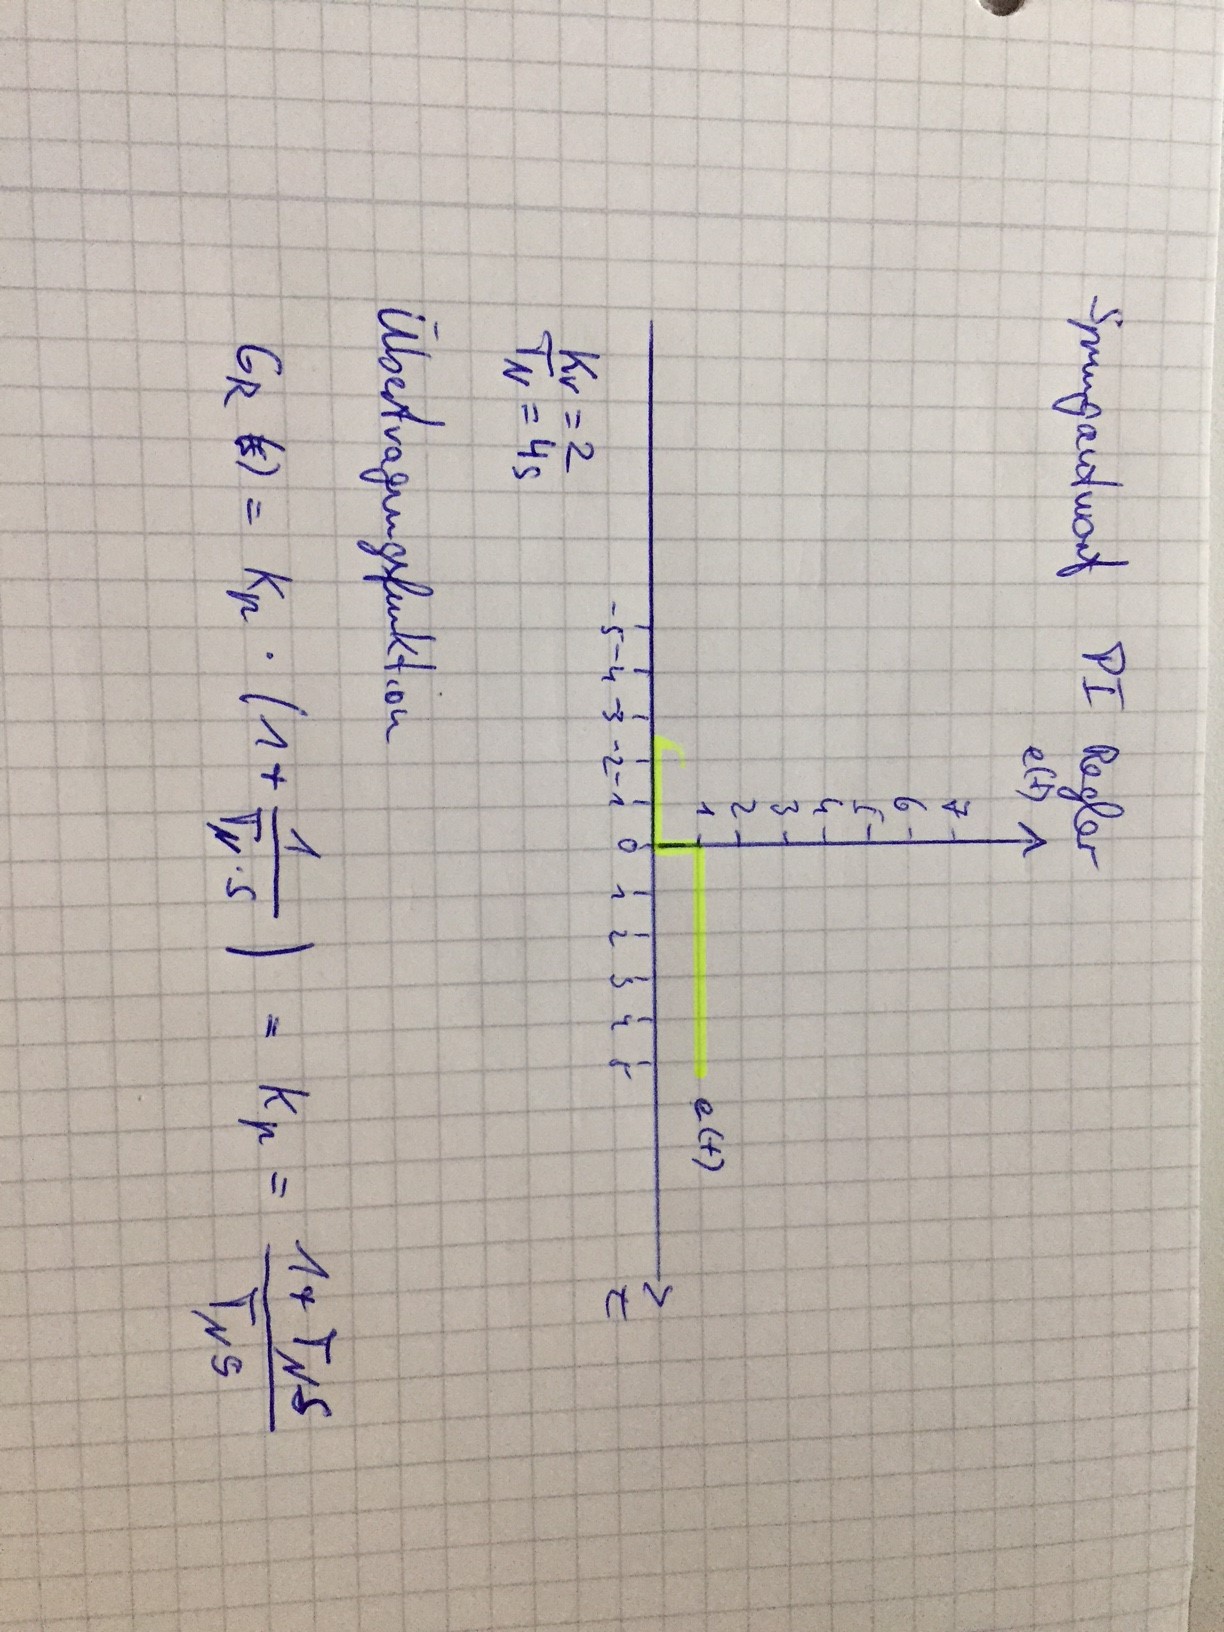 Sprungantwort PI Regler
e(t)
7
6
5
4
3
2
1
e(t)
-5 -4 -3 -2 -1 0 1 2 3 4 5
t
Kr = 2
TN = 4s
Übertragungsfunktion
GR (s) = Kp · (1 + 1/(TN·s)) = Kp = (1 + TNS)/(TNS)